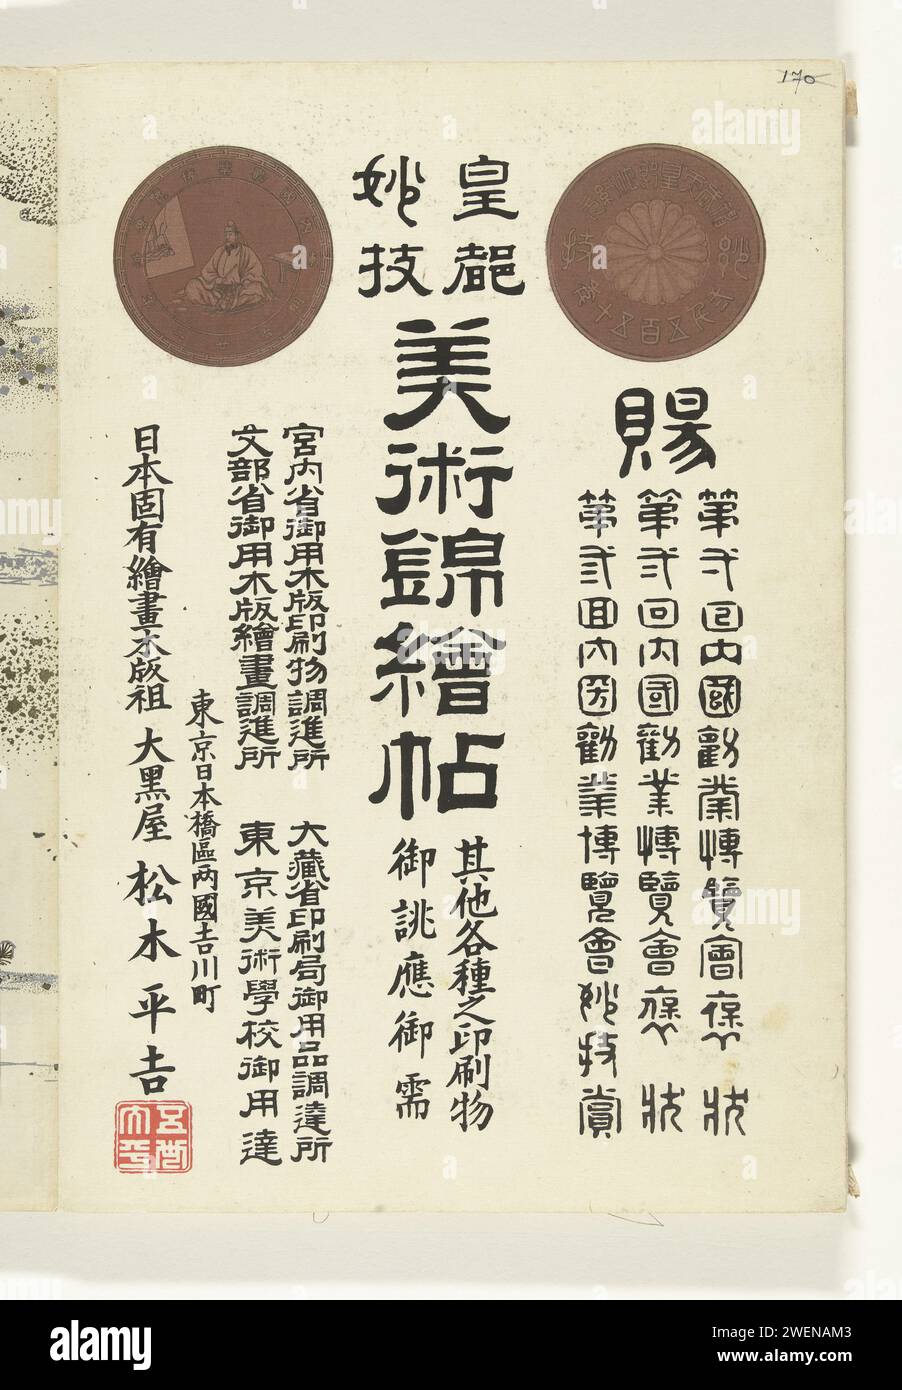 170
皇都
妙技
美術錦繪帖
其他各種之印刷物
御誂應御需
賜
第弐回内國勧業博覧會褒状
第弐回内國勧業博覧會褒状
第弐回内国勧業博覧會妙技賞
宮内省御用木版印刷物調進所
文部省御用木版繪畫調進所
大藏省印刷局御用品調達所
東京美術學校御用達
東京日本橋區两國吉川町
日本固有繪畫木版祖 大黒屋 松木平吉
alamy
Image ID: 2WENAM3
www.alamy.com